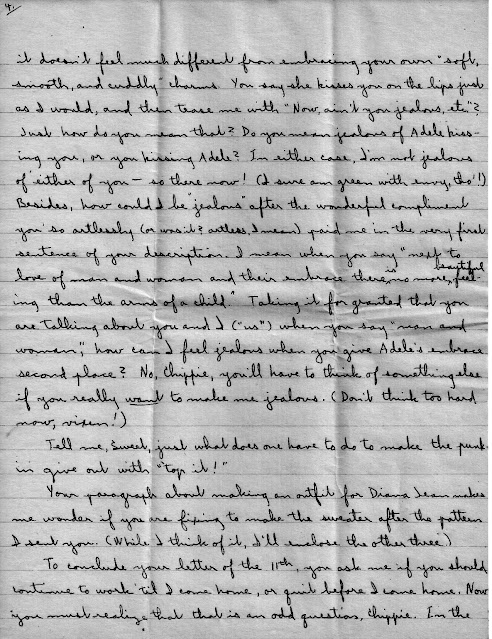 4.
it doesn't feel much different from embracing your own "soft,
smooth, and cuddly" charms. You say she kisses you on the lips just
as I would, and then tease me with "Now, ain't you jealous, etc."?
Just how do you mean that? Do you mean jealous of Adele kiss-
ing you, or you kissing Adele? In either case, I'm not jealous
of either of you — so there now! (I sure am green with envy, tho'!)
Besides, how could I be "jealous" after the wonderful compliment
you so artlessly (or was it? artless, I mean) paid me in the very first
sentence of your description. I mean when you say "next to
love of man and woman and their embrace there is no more beautiful feel-
ing than the arms of a child." Taking it for granted that you
are talking about you and I ("us") when you say "man and
woman," how can I feel jealous when you give Adele's embrace
second place? No, Chippie, you'll have to think of something else
if you really want to make me jealous. (Don't think too hard
now, vixen!)
Tell me, Sweet, just what does one have to do to make the punk-
in give out with "top it!"
Your paragraph about making an outfit for Diana Jean makes
me wonder if you are fixing to make the sweater after the pattern
I sent you. (While I think of it, I'll enclose the other three.)
To conclude your letter of the 11th, you ask me if you should
continue to work 'til I come home, or quit before I come home. Now
you must realize that that is an odd question, Chippie. I'm the